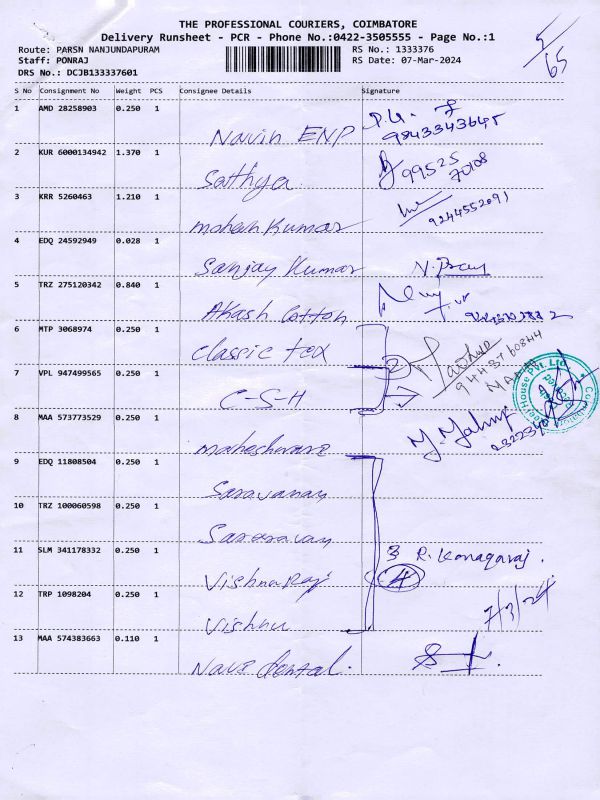 THE PROFESSIONAL COURIERS, COIMBATORE
Delivery Runsheet - PCR - Phone No.:0422-3505555 - Page No.:1
Route: PARSN NANJUNDAPURAM RS No.: 1333376
Staff: PONRAJ RS Date: 07-Mar-2024
DRS No.: DCJB133337601
5/65
S No Consignment No Weight PCS Consignee Details Signature
1 AMD 28258903 0.250 1
Navin ENP
2 KUR 6000134942 1.370 1
Sathya 99525 70108
3 KRR 5260463 1.210 1
mahesh Kumar 9244552091
4 EDQ 24592949 0.028 1
Sanjay Kumar
5 TRZ 275120342 0.840 1
Akash Cotton
6 MTP 3068974 0.250 1
Classic tex
2
7 VPL 947499565 0.250 1
C-S-H
8 MAA 573773529 0.250 1
maheshwari
9 EDQ 11808504 0.250 1
Saravanan
10 TRZ 100060598 0.250 1
Saravanan
11 SLM 341178332 0.250 1
3 R. Kanagaraj.
Vishnu Raj 4
12 TRP 1098204 0.250 1
7/3/24
Vishnu
13 MAA 574383663 0.110 1
dental.